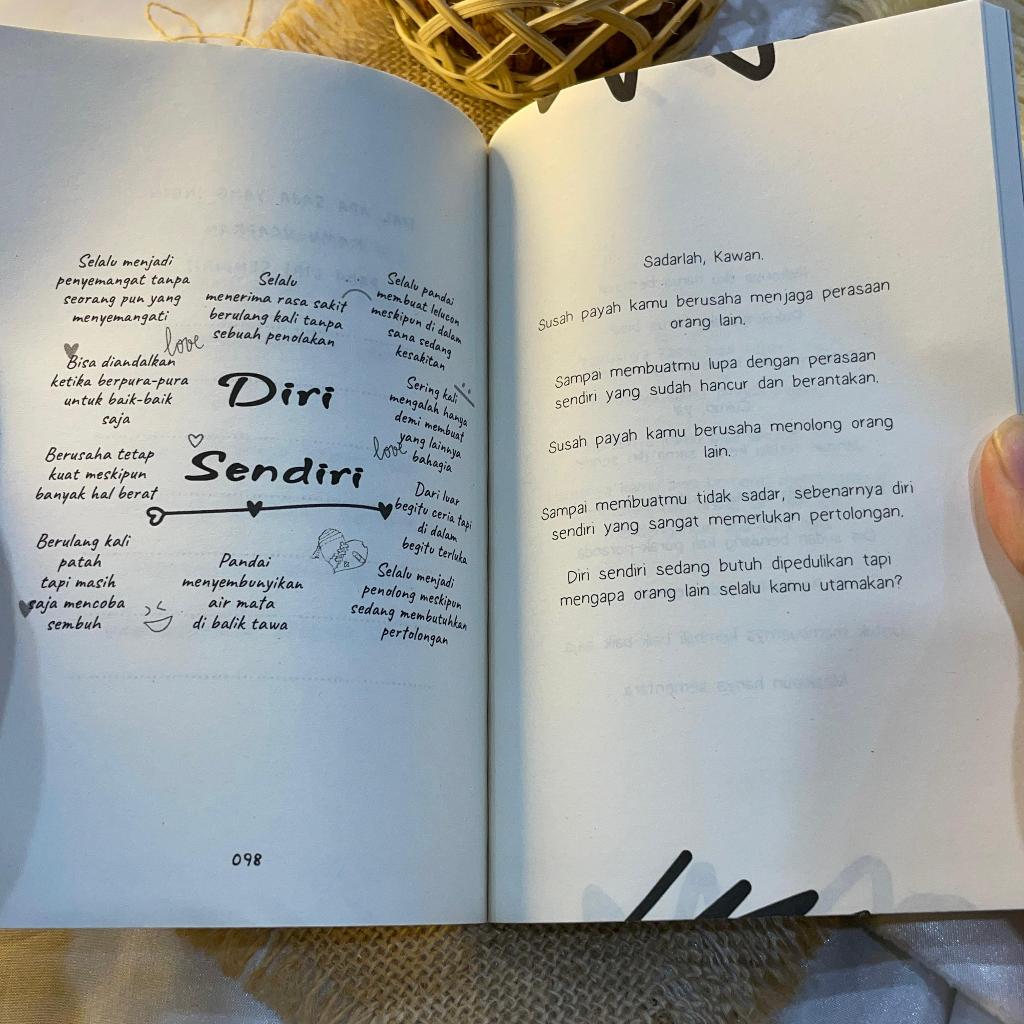 Selalu menjadi
penyemangat tanpa
seorang pun yang
menyemangati
Selalu
menerima rasa sakit
berulang kali tanpa
sebuah penolakan
Selalu pandai
membuat lelucon
meskipun di dalam
sana sedang
kesakitan
love
Bisa diandalkan
ketika berpura-pura
untuk baik-baik
saja
Diri
Sendiri
Sering kali
mengalah hanya
demi membuat
yang lainnya
bahagia
love
Berusaha tetap
kuat meskipun
banyak hal berat
Dari luar
begitu ceria tapi
di dalam
begitu terluka
Berulang kali
patah
tapi masih
saja mencoba
sembuh
Pandai
menyembunyikan
air mata
di balik tawa
Selalu menjadi
penolong meskipun
sedang membutuhkan
pertolongan
098
Sadarlah, Kawan.
Susah payah kamu berusaha menjaga perasaan
orang lain.
Sampai membuatmu lupa dengan perasaan
sendiri yang sudah hancur dan berantakan.
Susah payah kamu berusaha menolong orang
lain.
Sampai membuatmu tidak sadar, sebenarnya diri
sendiri yang sangat memerlukan pertolongan.
Diri sendiri sedang butuh dipedulikan tapi
mengapa orang lain selalu kamu utamakan?